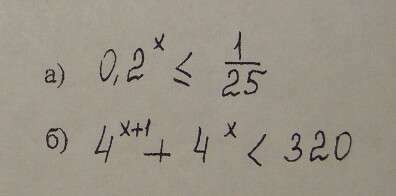 а) 0,2^x ≤ 1/25
б) 4^(x+1) + 4^x < 320